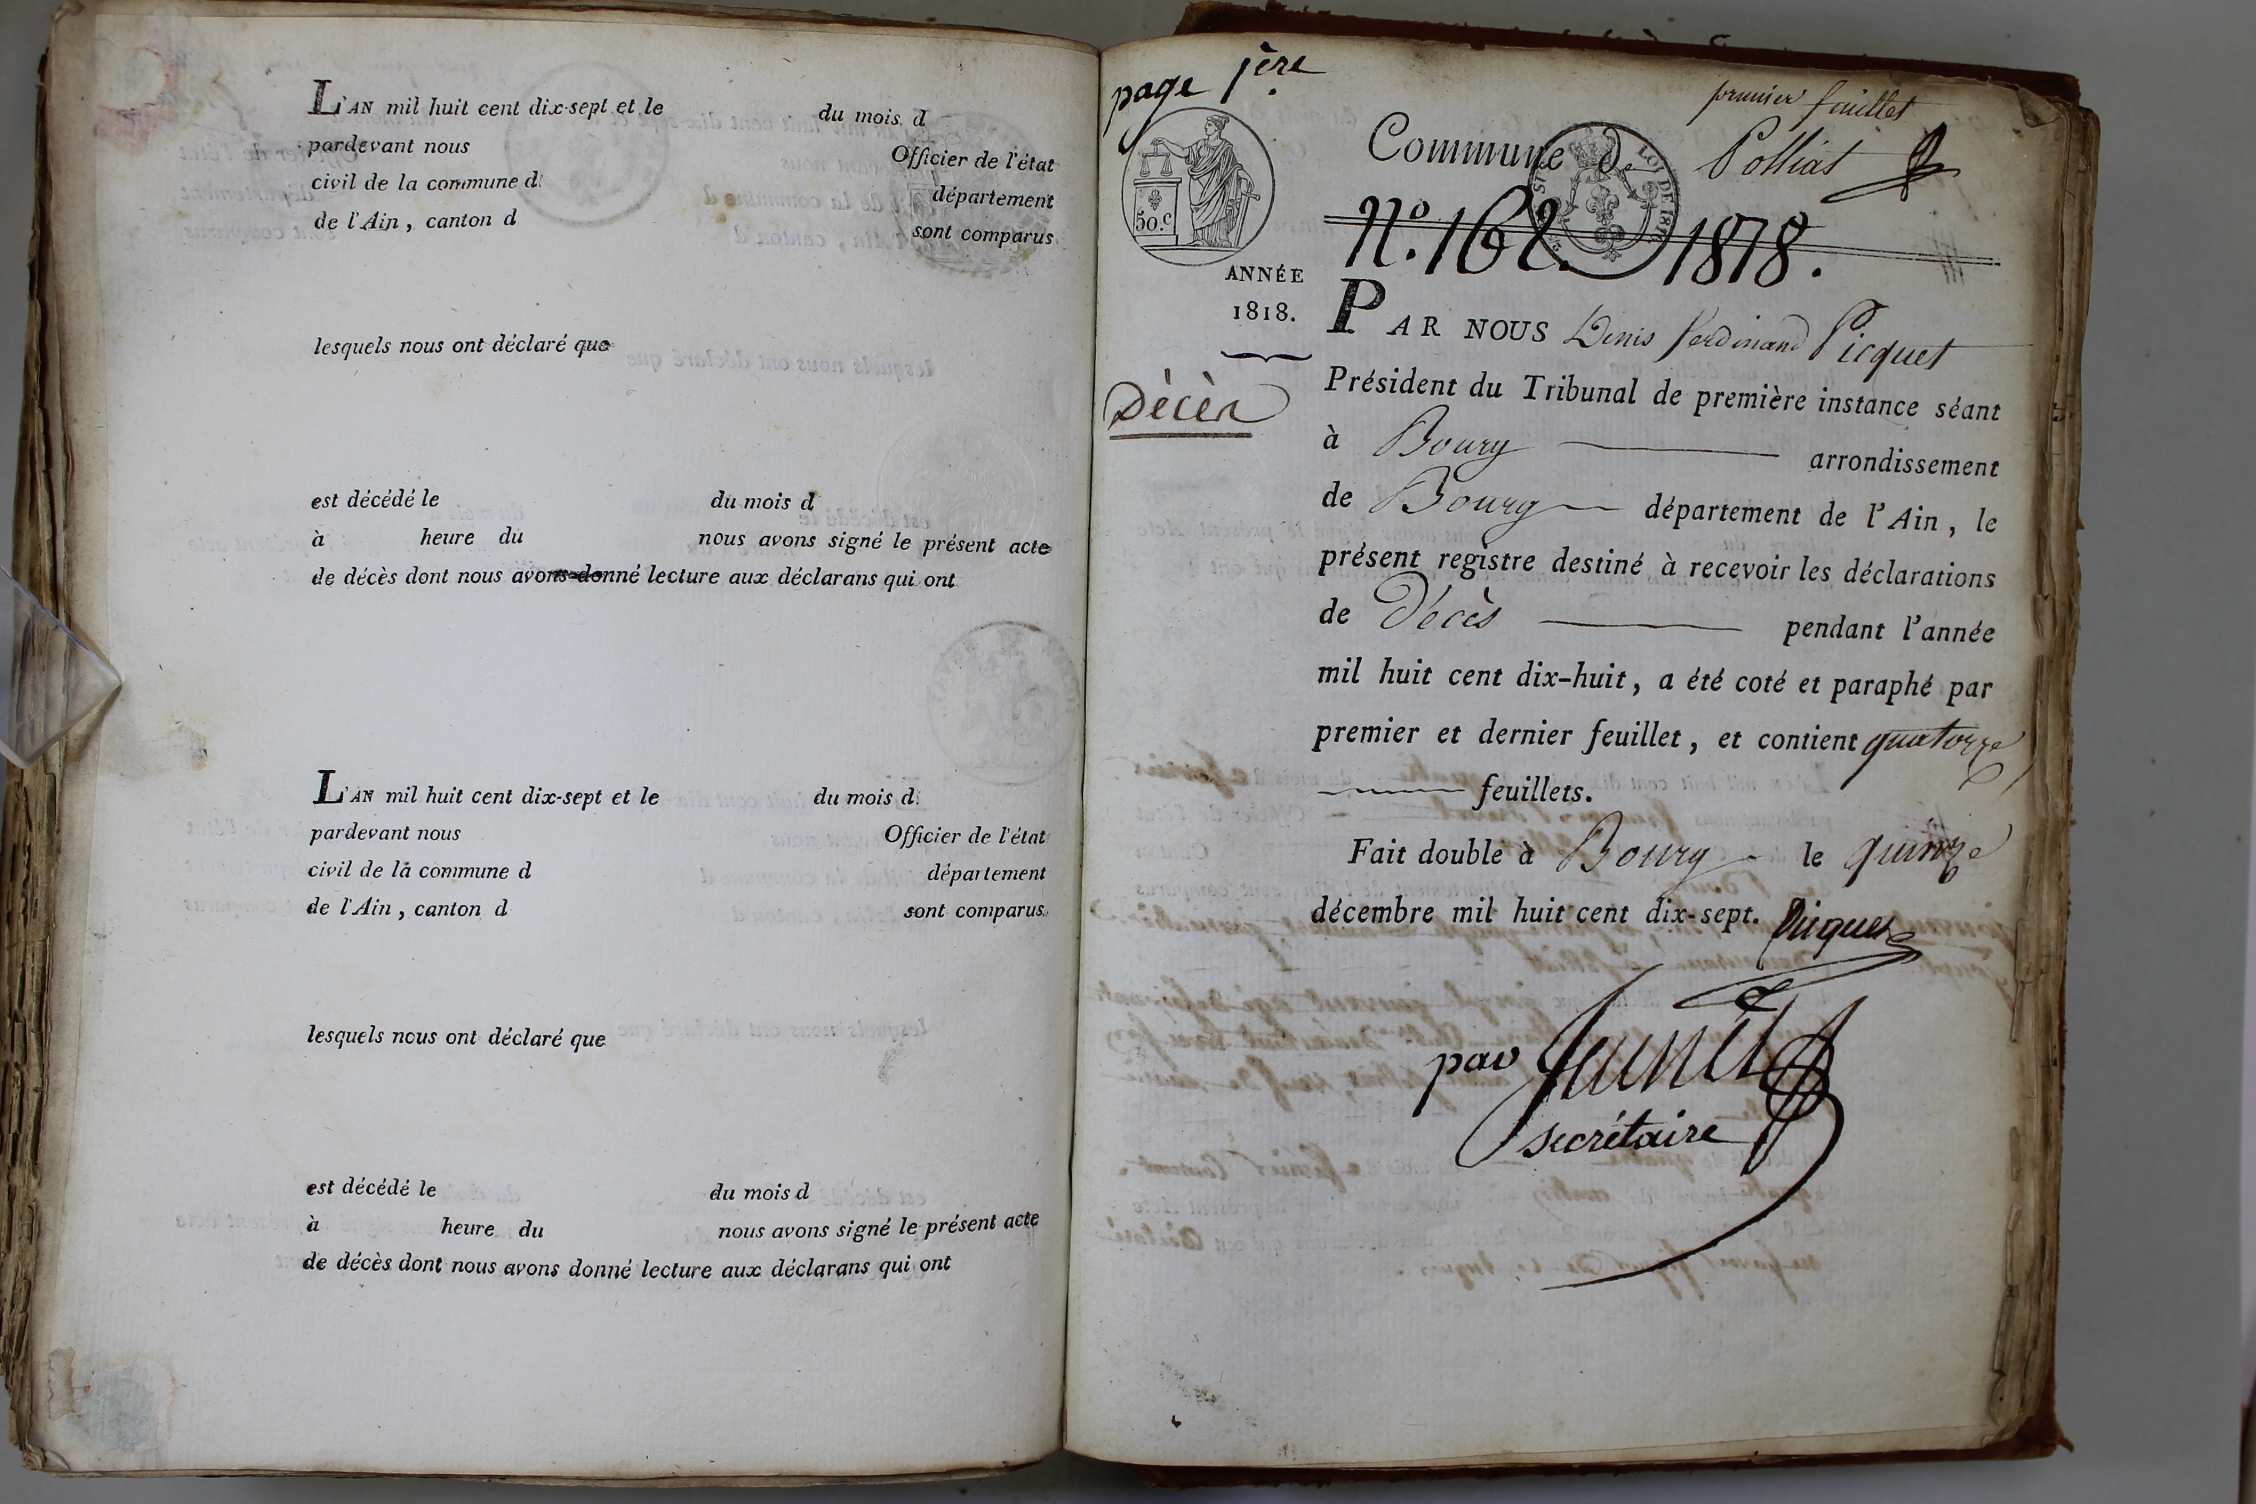 L'AN mil huit cent dix-sept et le du mois d
pardevant nous Officier de l'état
civil de la commune d département
de l'Ain, canton d sont comparus
lesquels nous ont déclaré que
est décédé le du mois d
à heure du nous avons signé le présent acte
de décès dont nous avons donné lecture aux déclarans qui ont
L'AN mil huit cent dix-sept et le du mois d
pardevant nous Officier de l'état
civil de la commune d département
de l'Ain, canton d sont comparus
lesquels nous ont déclaré que
est décédé le du mois d
à heure du nous avons signé le présent acte
de décès dont nous avons donné lecture aux déclarans qui ont
page 1ère
premier feuillet
Commune de Polliat
50.c
LOI DE 1816
N.° 162. 1878.
ANNÉE
1818.
Décès
PAR NOUS Denis Ferdinand Picquet
Président du Tribunal de première instance séant
à Bourg arrondissement
de Bourg département de l'Ain, le
présent registre destiné à recevoir les déclarations
de Décès pendant l'année
mil huit cent dix-huit, a été coté et paraphé par
premier et dernier feuillet, et contient quatorze
feuillets.
Fait double à Bourg le quinze
décembre mil huit cent dix-sept. Picquet
par
secrétaire